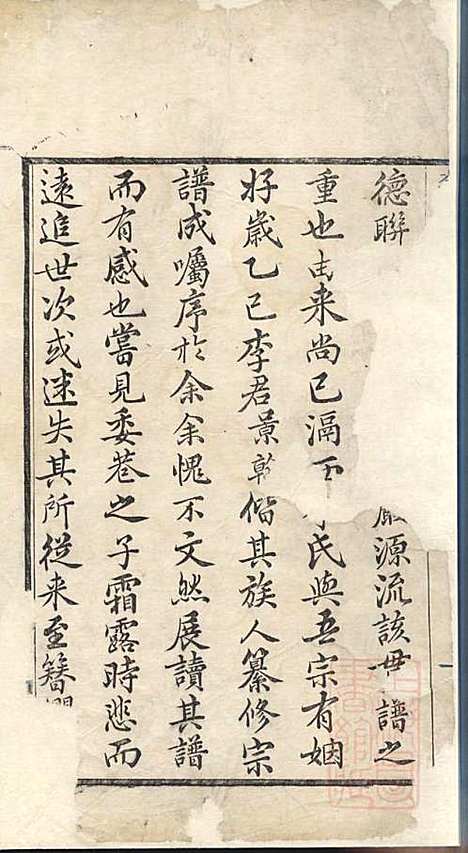 德聯源流該毋譜之
重也由来尚已溯氏與吾宗有姻
好歲乙巳李君景乾偕其族人纂修宗
譜成囑序於余余愧不文然展讀其譜
而有感也嘗見委巷之子霜露時悲而
遠追世次或迷失其所從来至簪